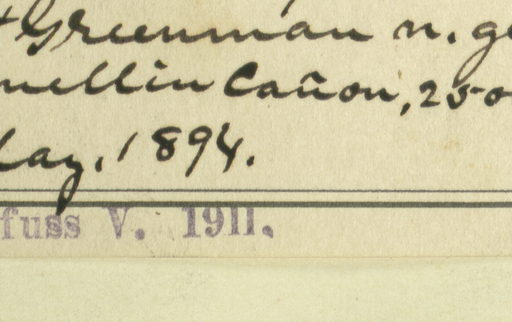 Greenman n. g
nellin Cañon, 250
May, 1894.
fuss V. 1911.